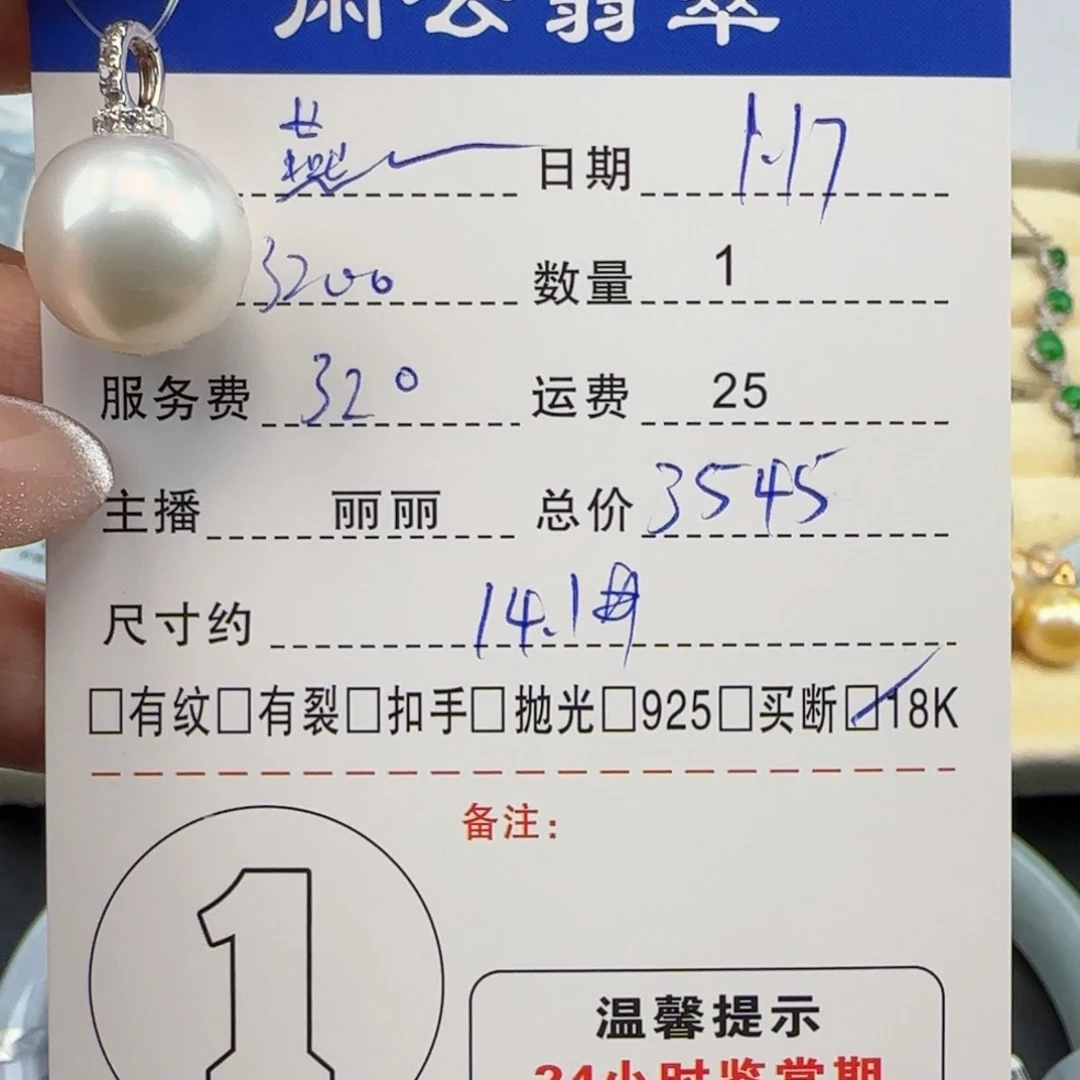 翡翠
燕 日期 1.17
3200 数量 1
服务费 320 运费 25
主播 丽丽 总价 3545
尺寸约 14.1
□有纹□有裂□扣手□抛光□925□买断☑18K
备注：
1
温馨提示
24小时鉴赏期